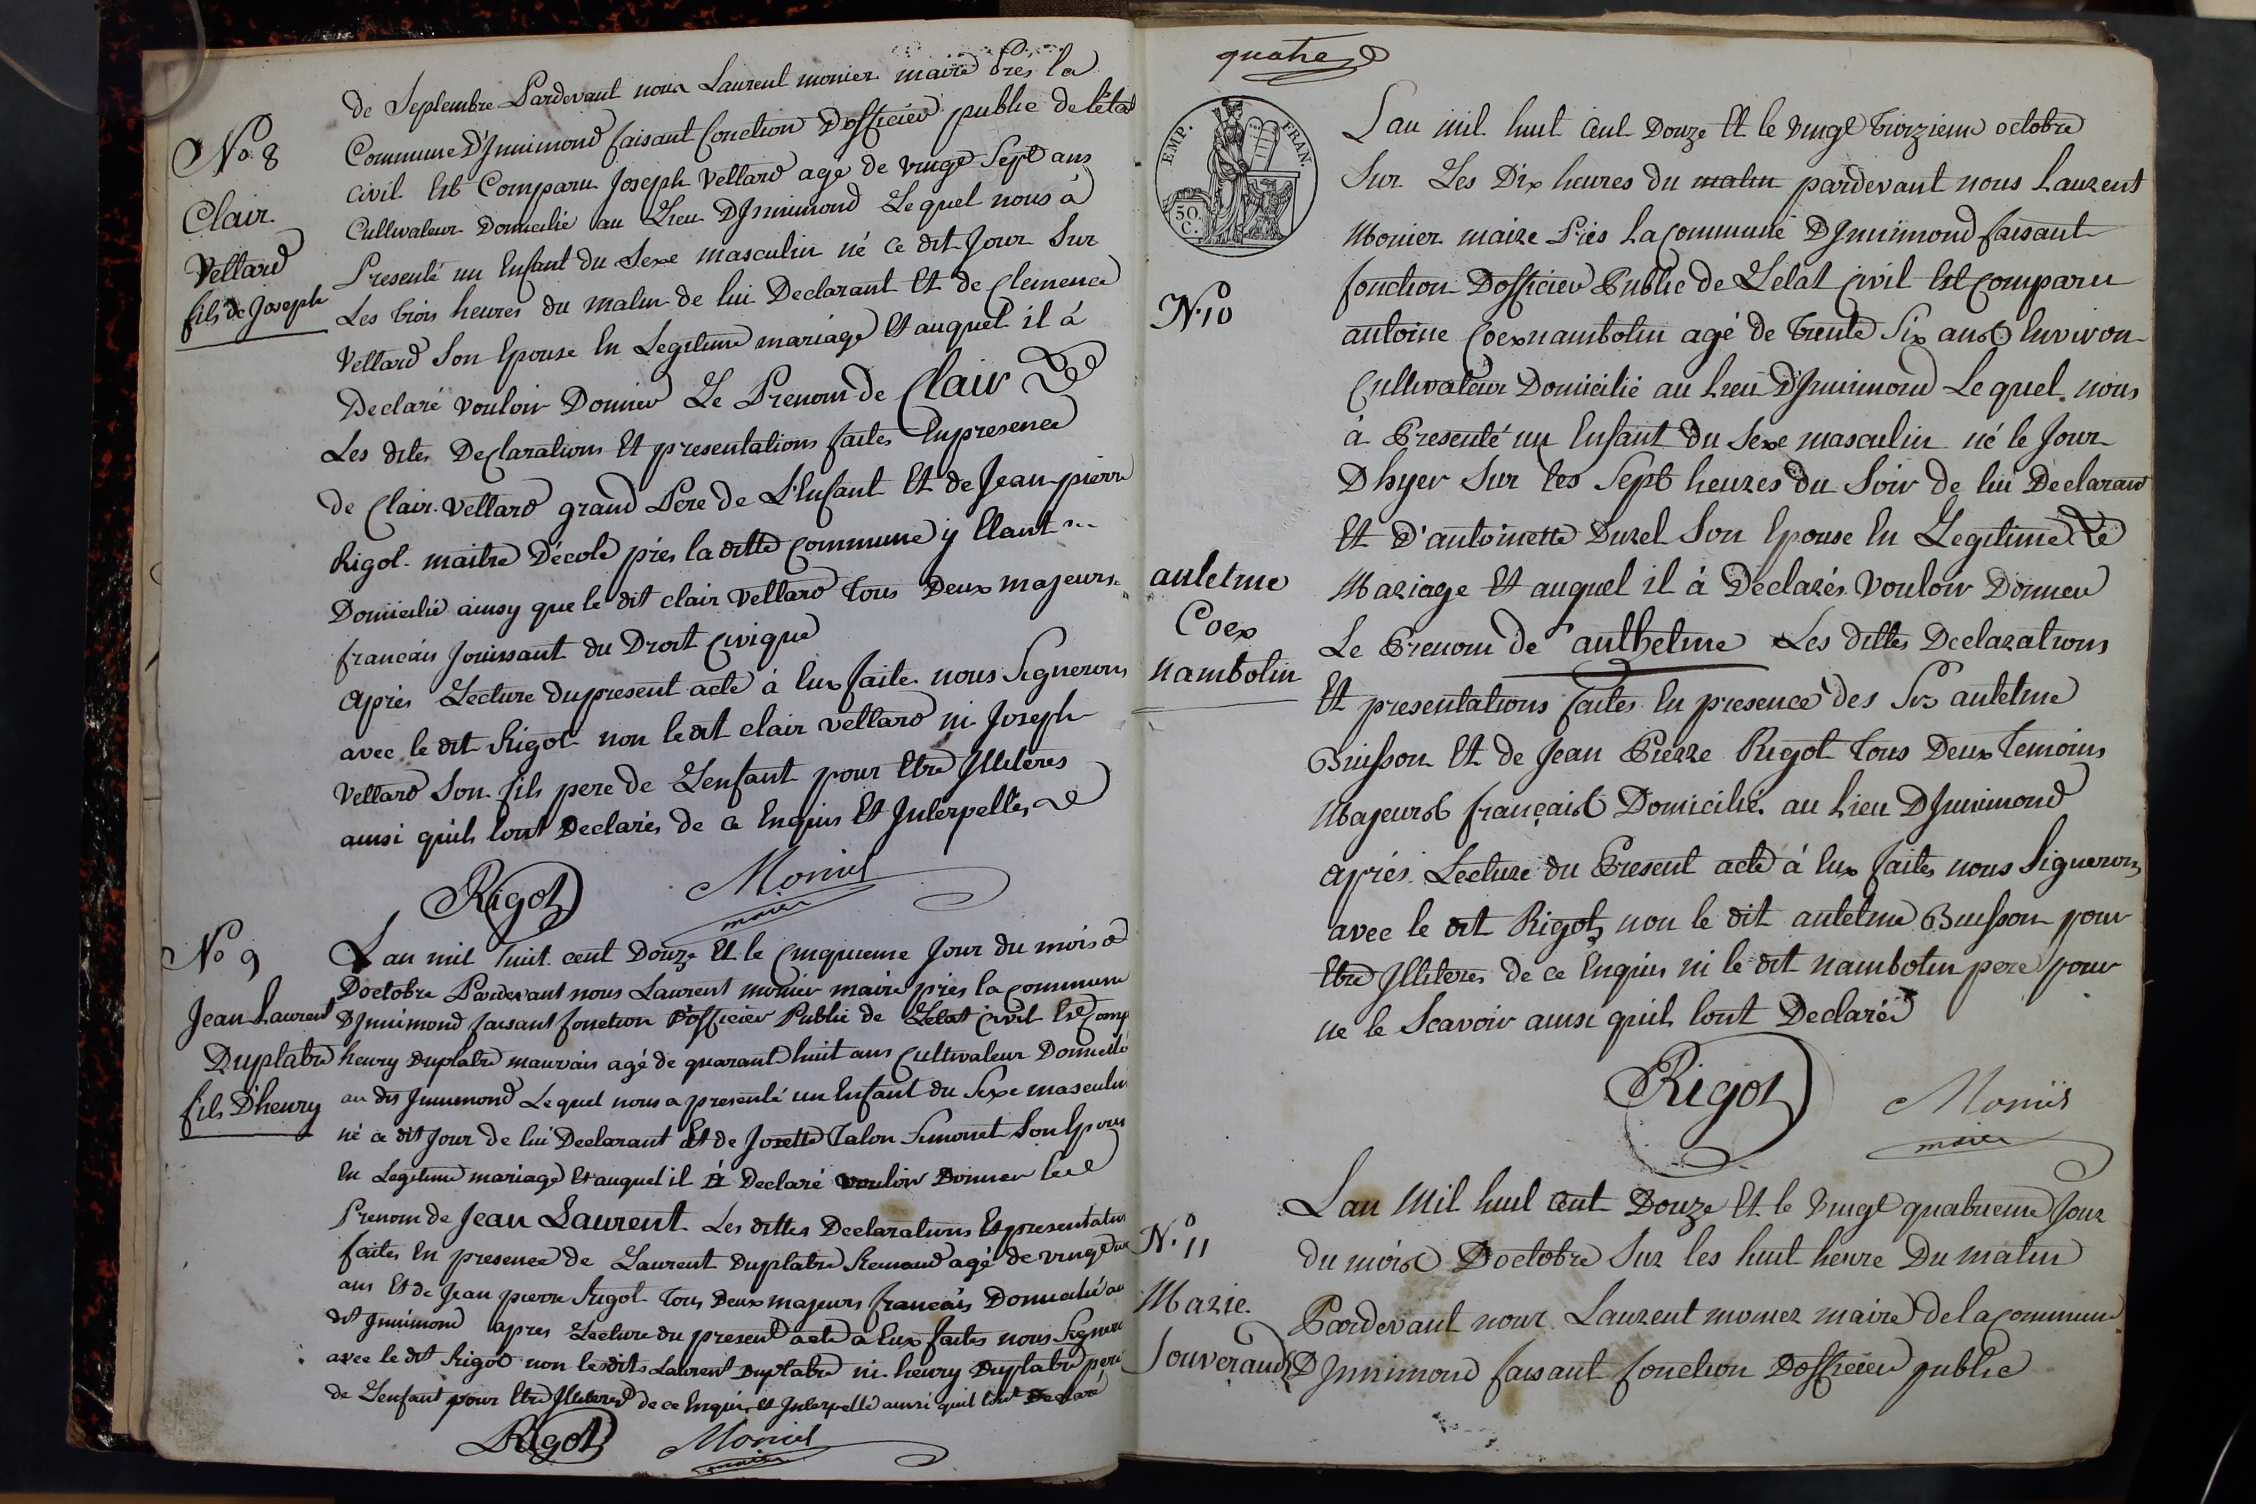 de Septembre Pardevant nous Laurent monier maire prés la
No 8
Commune D'Jnnimond faisant fonction D'officier public de l'état
civil Est Comparu Joseph Vettard agé de vingt Sept ans
Clair
Cultivateur Domicilié au Lieu DJnnimond Lequel nous à
Vettard
Presenté un Enfant du Sexe masculin né ce dit Jour Sur
fils de Joseph
Les trois heures du matin de lui Declarant Et de Clemence
Vettard Son Epouse En Legitime mariage Et auquel il à
Declaré vouloir Donner Le Prenom de Clair
Les dites Declarations Et presentations faites En presence
de Clair Vettard grand Pere de L'Enfant Et de Jean pierre
Rigot maitre D'école prés la ditte commune y Etant
Domicilié ainsy que le dit clair Vettard tous Deux majeurs
francais Jouissant du Droit Civique
après Lecture du present acte à Eux faite nous Signerons
avec le dit Rigot non le dit clair vettard ni Joseph
Vettard Son fils pere de L'enfant pour Etre Jlliteres
ainsi quils l'ont Declarés de ce Enquis Et Jnterpellés
Rigot Monier
maire
No 9
Lan mil huit cent Douze Et le Cinquieme Jour du mois
Doctobre Pardevant nous Laurent monier maire près la commune
Jean Laurent
DJnnimond faisant fonction D'officier Public de Letat Civil Est Comp
Duplatre
henry Duplatre mauvais agé de quarant huit ans Cultivateur Domicilié
fils D'henry
au dit Jnnimond Lequel nous a presenté un Enfant du Sexe masculin
né ce dit Jour de lui Declarant Et de Josette Talon Simonet Son Epouse
En Legitime mariage Et auquel il à Declaré vouloir Donner le
Prenom de Jean Laurent Les dittes Declarations Et presentations
faites En presence de Laurent Duplatre agé de vingt
ans Et de Jean pierre Rigot tous Deux majeurs francais Domicilié au
dit Jnnimond apres Lecture du present acte a Eux faites nous Signerons
avec le dit Rigot non lesdits Laurent Duplatre ni henry Duplatre pere
de L'enfant pour Etre Jlliteres de ce Enquis et Jnterpellé ainsi quil lont Declaré
Rigot Monier
maire
quatre
EMP. FRAN.
50 C.
Lan mil huit cent Douze Et le vingt troizieme octobre
Sur Les Dix heures du matin pardevant nous Laurent
Monier maire Près La Commune DJnnimond faisant
fonction D'officier Public de L'etat Civil Est Comparu
N° 10
antoine Coex nambotin agé de Trente Six ans Environ
Cultivateur Domicilié au Lieu D'Jnnimond Lequel nous
à Presenté un Enfant du Sexe masculin né le Jour
D'hyer Sur les Sept heures du Soir de lui Declarant
Et D'antoinette Durel Son Epouse En Legitime
antelme
Mariage Et auquel il à Declarés Vouloir Donner
Coex
Le Prenom de anthelme Les dittes Declarations
nambotin
Et presentations faites En presence des Srs antelme
Buisson Et de Jean Pierre Rigot tous Deux Temoins
Majeurs français Domicilié au Lieu DJnnimond
après Lecture du Present acte à Eux faites nous Signerons
avec le dit Rigot non le dit antelme Buisson pour
Etre Jlliteres de ce Enquis ni le dit nambotin pere pour
ne le Scavoir ainsi quils l'ont Declarés
Rigot Monier
maire
Lan Mil huit cent Douze Et le Vingt quatrieme Jour
N° 11
du mois Doctobre Sur les huit heure Du matin
Marie
Pardevant nous Laurent monier maire de la commune
Souverand
DJnnimond faisant fonction D'officier public